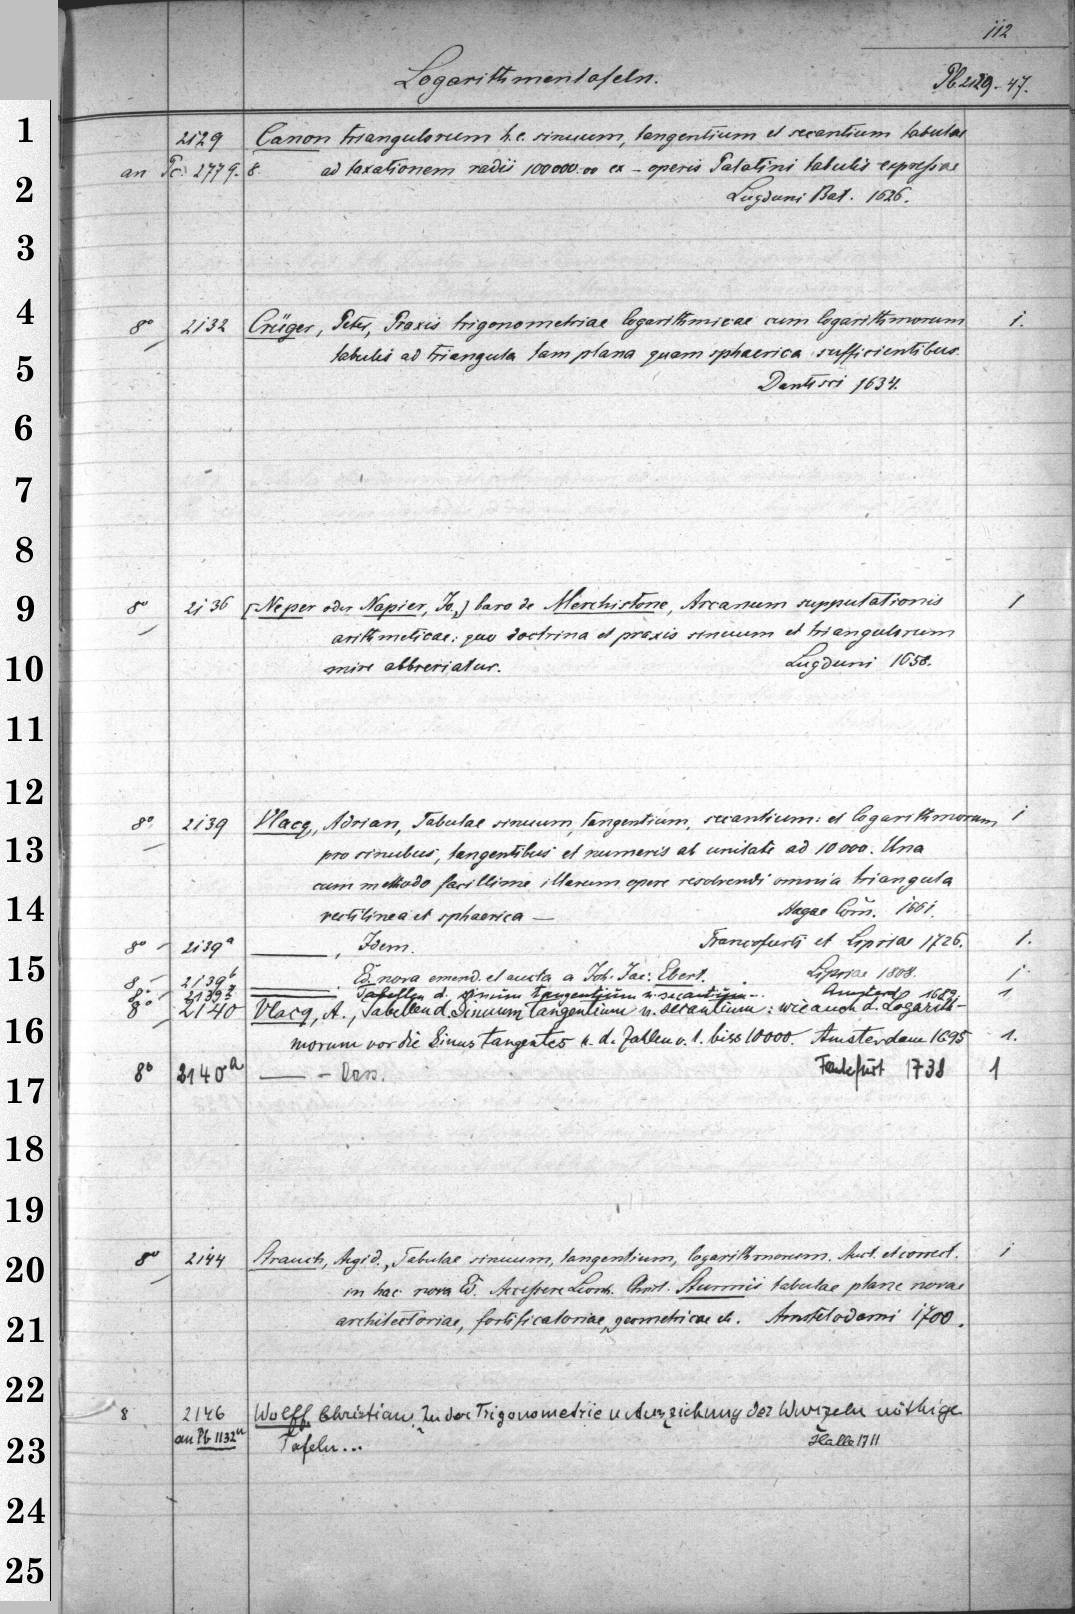 112
Logarithmentafeln. Pb 2129-47.
1
2129 Canon triangulorum h.e. sinuum, tangentium et secantium tabulae
an Pc: 2779. 8. ad taxationem radii 100000.00 ex - operis Palatini tabulis expressae
2
Lugduni Bat. 1626.
3
4
8° 2132 Crüger, Peter, Praxis trigonometriae logarithmicae cum logarithmorum 1.
tabulis ad triangula tam plana quam sphaerica sufficientibus.
5
Dantisci 1634.
6
7
8
9
8° 2136 [Neper oder Napier, Jo.,] baro de Merchistone, Arcanum supputationis 1
arithmeticae: quo doctrina et praxis sinuum et triangulorum
10
mire abbreviatur. Lugduni 1658.
11
12
8° 2139 Vlacq, Adrian, Tabulae sinuum, tangentium, secantium: et logarithmorum 1
13
pro sinubus, tangentibus et numeris ab unitate ad 10000. Una
cum methodo facillime illarum opere resolvendi omnia triangula
14
rectilinea et sphaerica — Hagae Com. 1661.
8° 2139a ———, Idem. Francofurti et Lipsiae 1726. 1.
15
8 2139b ———. Ed. nova emend. et aucta a Joh. Jac: Ebert. Lipsiae 1808. 1
8° ——— Tabellen d. sinuum tangentium u. secantium... Amsterd. 1689 1
8° 2140 Vlacq, A., Tabellen d. Sinuum tangentium u. secantium: wie auch d. Logarith-
16
morum vor die Sinus tangentes u. d. Zallen v. 1. biss 10000. Amsterdam 1695 1.
8° 2140a —— - Dass. Frankfurt 1738 1
17
18
19
8° 2144 Strauch, Aegid., Tabulae sinuum, tangentium, logarithmorum. Auct. et correct. 1
20
in hac nova Ed. Accessere Leonh. Christ. Sturmii tabulae plane novae
21
architectoriae, fortificatoriae, geometricae etc. Amstelodami 1700.
22
8 2146 Wolff, Christian, Zu der Trigonometrie u Ausziehung der Wurzeln nöthige
an Pb 1132n Tafeln... Halle 1711
23
24
25